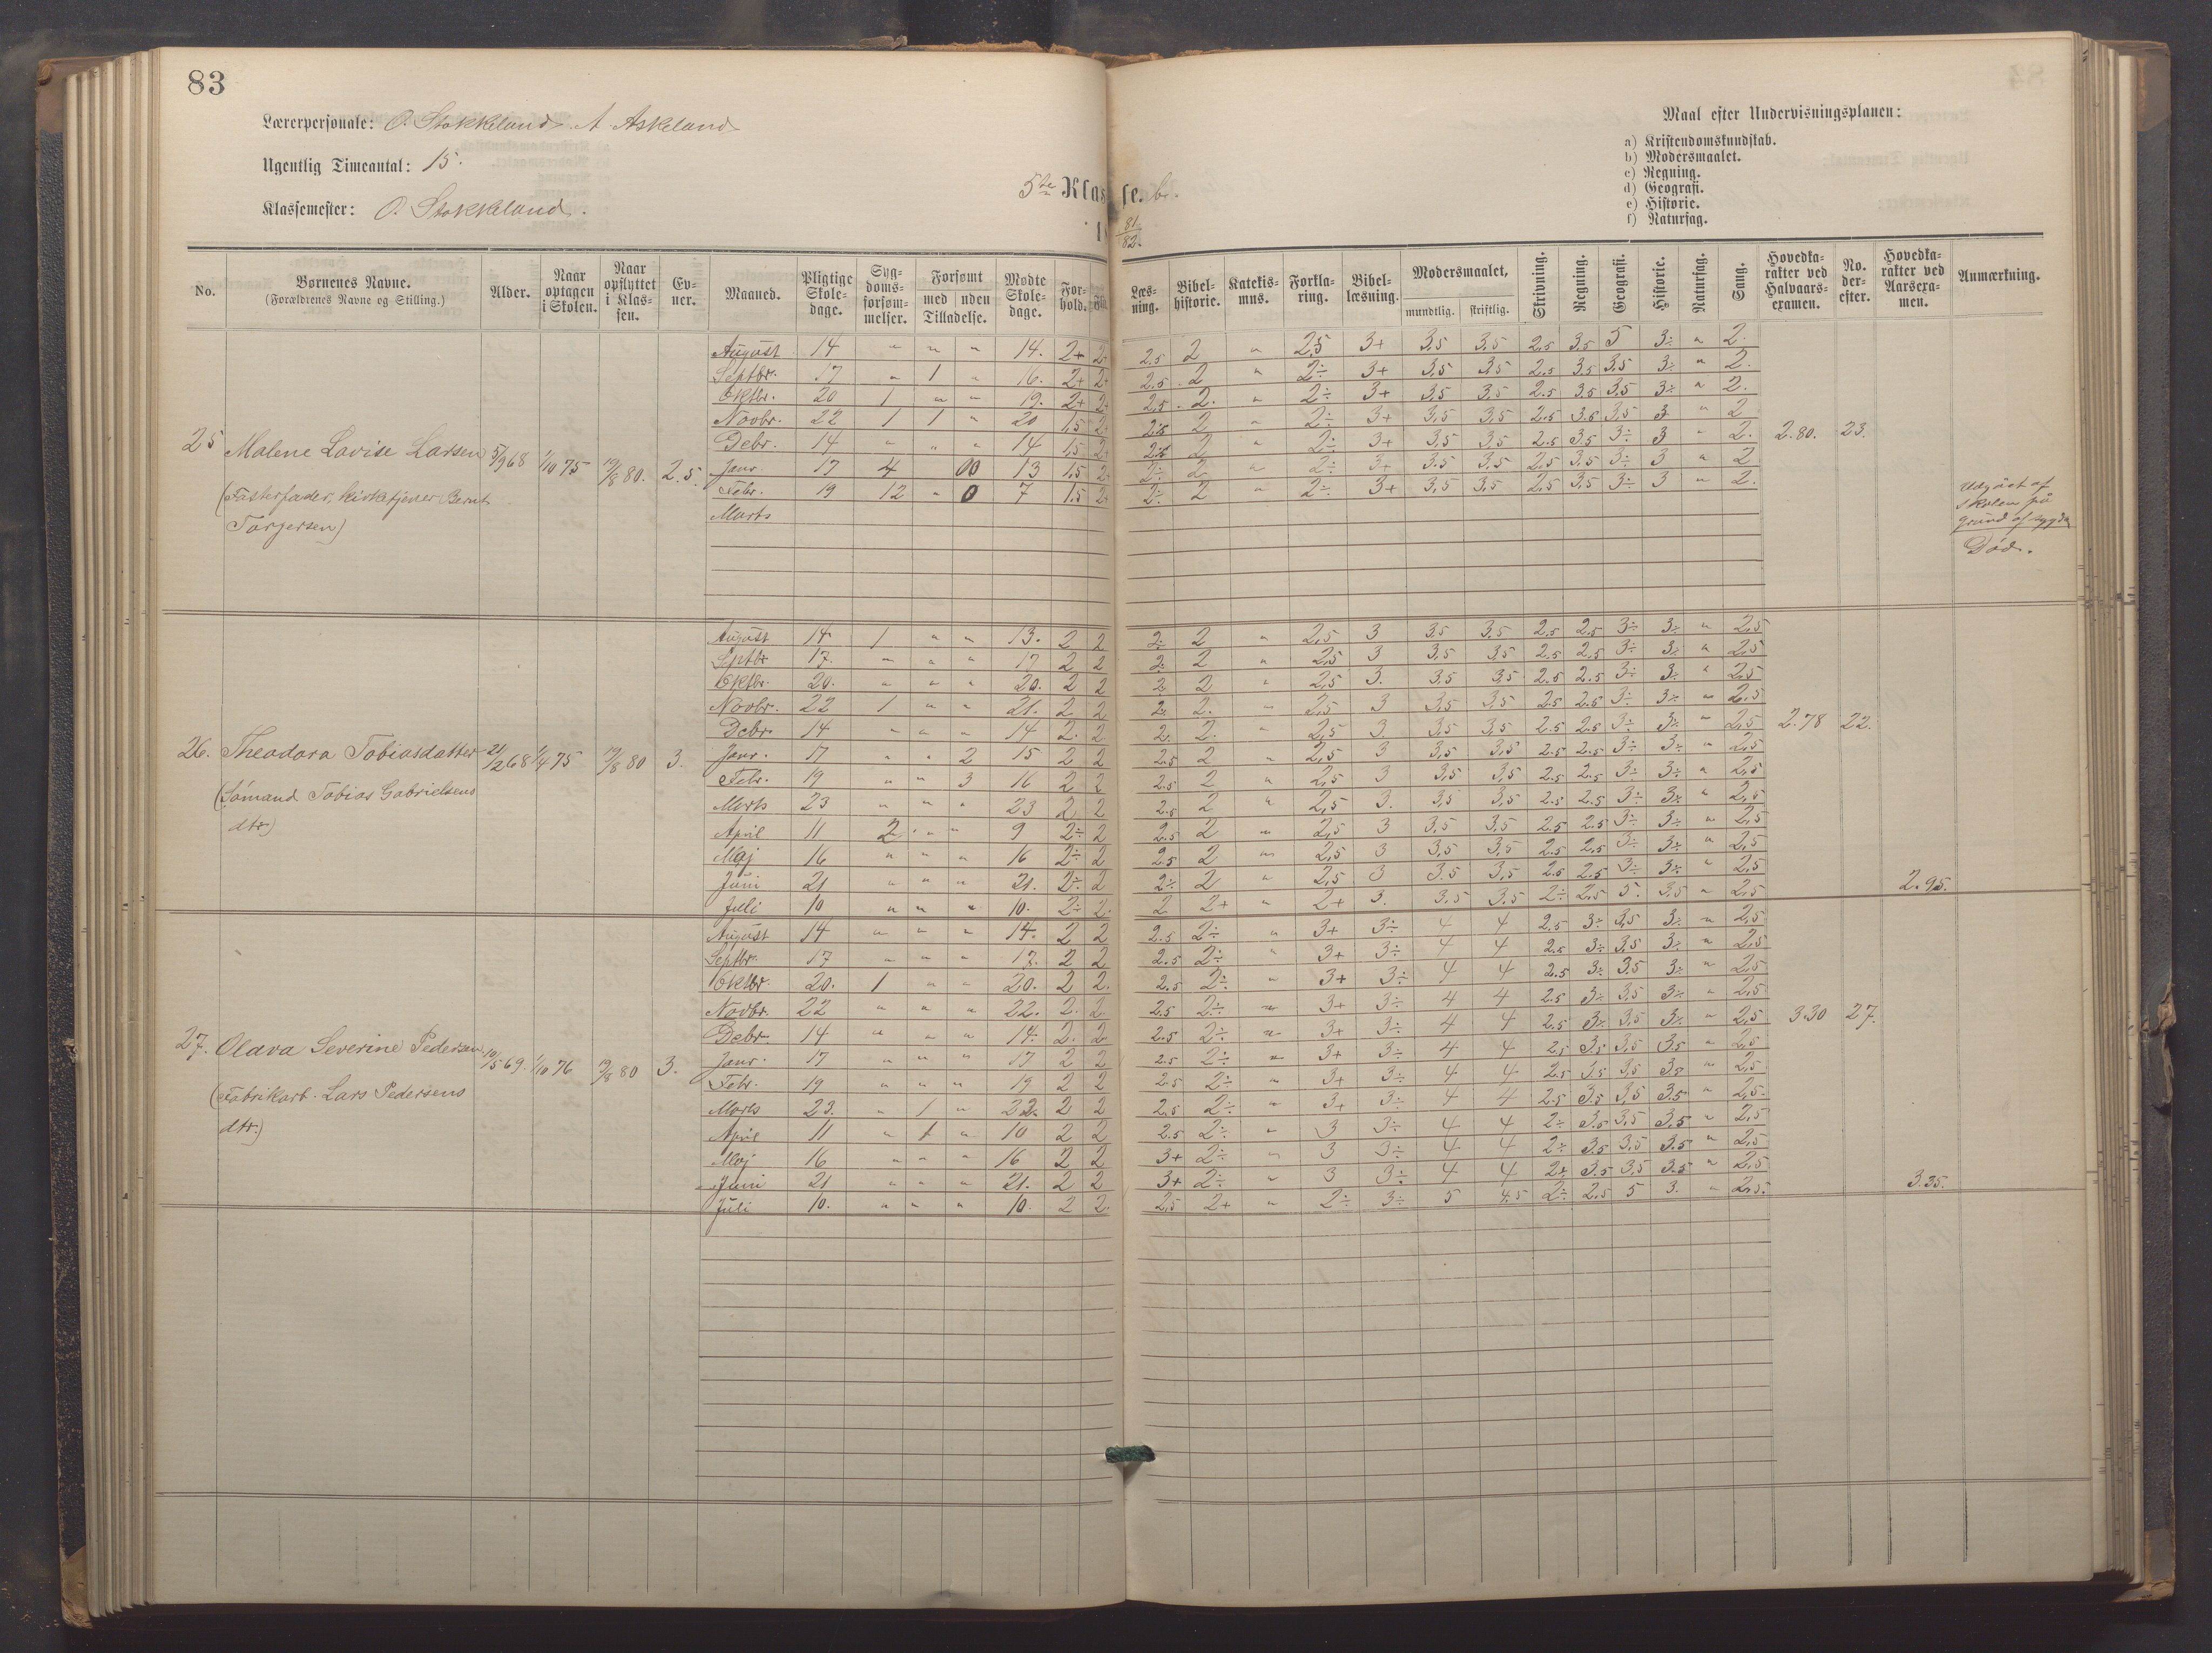 83
Lærerpersonale: O. Stokkeland. A. Askeland
Ugentlig Timeantal: 15.
Klassemester: O. Stokkeland.
5te Klasse. b.
81/82.
Maal efter Undervisningsplanen:
a) Kristendomskundskab.
b) Modersmaalet.
c) Regning.
d) Geografi.
e) Historie.
f) Naturfag.
No. | Børnenes Navne. (Forældrenes Navne og Stilling.) | Alder. | Naar optagen i Skolen. | Naar opflyttet i Klassen. | Evner. | Maaned. | Pligtige Skoledage. | Sygdomsforsømmelser. | Forsømt med Tilladelse. | uden | Mødte Skoledage. | Forhold. | Læsning. | Bibelhistorie. | Katekismus. | Forklaring. | Bibellæsning. | Modersmaalet, mundtlig. | skriftlig. | Skrivning. | Regning. | Geografi. | Historie. | Naturfag. | Sang. | Hovedkarakter ved Halvaarsexamen. | No. derefter. | Hovedkarakter ved Aarsexamen. | Anmærkning.
25 Malene Lovise Larsen 5/9 68 1/10 75 19/8 80. 2.5. 2.80. 23.
(Fosterfader, kirketjener Bernt
Torjersen)
August 14 " " " 14. 2+ 2+ 2.5 2 " 2,5 3+ 3,5 3,5 2.5 3.5 5 3÷ " 2.
Septbr. 17 " 1 " 16. 2+ 2+ 2.5 2 " 2÷ 3+ 3,5 3,5 2.5 3.5 3,5 3÷ " 2.
Oktbr. 20 1 " " 19. 2+ 2+ 2.5 2. " 2÷ 3+ 3,5 3,5 2.5 3.5 3,5 3÷ " 2.
Novbr. 22 1 1 " 20 1,5 2+ 2 " 2÷ 3+ 3,5 3,5 2.5 3.5 3,5 3 " 2
Debr. 14 " " " 14 1,5 2+ 2 " 2÷ 3+ 3,5 3,5 2.5 3.5 3÷ 3 " 2.
Janr. 17 4 00 13 1,5 2+ 2÷ 2 " 2÷ 3+ 3.5 3,5 2,5 3.5 3÷ 3 " 2
Febr. 19 12 " 0 7 1,5 2+ 2÷ 2 " 2÷ 3+ 3,5 3,5 2,5 3,5 3÷ 3 " 2.
Marts
Udgået af
skolen på
grund af sygdom
Død.
26. Theodora Tobiasdatter 21/2 68 1/4 75 19/8 80 3. 2.78 22. 2.95.
(Sömand Tobias Gabrielsens
dtr)
August 14 1 " " 13. 2 2 2÷ 2 " 2,5 3 3,5 3,5 2.5 2.5 3÷ 3÷ " 2,5
Septbr 17. " " " 17 2 2 2 2 " 2,5 3 3,5 3,5 2.5 2.5 3÷ 3÷ " 2,5
Oktbr. 20. " " " 20. 2 2 2 2 " 2,5 3. 3.5 3,5 2.5 2.5 3÷ 3÷ " 2,5
Novbr. 22 1 " " 21. 2 2 2 2. " 2,5 3 3,5 3,5 2.5 2.5 3÷ 3÷ " 2,5
Debr 14 " " " 14 2. 2 2. 2. " 2,5 3. 3,5 3,5 2.5 2.5 3÷ 3÷ " 2,5
Janr. 17 " " 2 15 2 2 2.5 2 " 2,5 3 3,5 3,5 2.5 2.5 3÷ 3÷ " 2,5
Febr. 19 " " 3 16 2 2 2.5 2 " 2,5 3 3,5 3,5 2.5 2.5 3÷ 3÷ " 2,5
Marts 23 " " " 23 2 2 2.5 2 " 2,5 3. 3,5 3,5 2.5 2.5 3÷ 3÷ " 2,5
April 11 2 " " 9 2÷ 2 2.5 2 " 2,5 3 3,5 3,5 2.5 2.5 3÷ 3÷ " 2,5
Maj 16 " " " 16 2÷ 2 2.5 2 " 2,5 3 3,5 3,5 2.5 2.5 3÷ 3÷ " 2,5
Juni 21 " " " 21. 2÷ 2 2÷ 2 " 2,5 3 3.5 3,5 2.5 2.5 3÷ 3÷ " 2,5
Juli 10 " " " 10. 2÷ 2. 2 2+ " 2+ 3. 3,5 3,5 2÷ 2,5 5. 3,5 " 2,5
27. Olava Severine Pedersen 10/5 69. 1/10 76 19/8 80 3. 3.30 27. 3.35.
(Fabrikarb. Lars Pedersens
dtr.)
August 14 " " " 14. 2 2 2.5 2÷ " 3+ 3÷ 4 4 2.5 3÷ 3,5 3÷ " 2,5
Septbr. 17 " " " 17. 2 2 2.5 2÷ " 3+ 3÷ 4 4 2.5 3÷ 3,5 3÷ " 2,5
Oktbr. 20. 1 " " 20. 2 2. 2.5 2÷ " 3+ 3÷ 4 4 2.5 3÷ 3,5 3÷ " 2,5
Novbr. 22 " " " 22. 2. 2. 2.5 2÷ " 3+ 3÷ 4 4 2.5 3÷ 3,5 3÷ " 2,5
Debr 14 " " " 14. 2. 2 2.5 2÷ " 3+ 3÷ 4 4 2.5 3÷ 3,5 3÷ " 2,5
Janr. 17 " " " 17 2 2 2.5 2÷ " 3+ 3÷ 4 4 2.5 3.5 3,5 3.5 " 2,5
Febr. 19 " " " 19 2 2 2.5 2÷ " 3+ 3÷ 4 4 2.5 3.5 3,5 3.5 " 2,5
Marts 23. " 1 " 22. 2 2 2.5 2÷ " 3+ 3÷ 4 4 2.5 3.5 3,5 3.5 " 2,5.
April 11 " 1 " 10 2 2 2.5 2÷ " 3 3÷ 4 4 2÷ 3.5 3,5 3,5 " 2,5
Maj 16 " " " 16 2 2 3+ 2÷ " 3 3÷ 4 4 2÷ 3.5 3,5 3.5 " 2,5
Juni 21 " " " 21. 2 2 3+ 2÷ " 3 3÷ 4 4 2+ 3.5 3,5 3.5 " 2,5
Juli 10. " " " 10. 2 2. 2,5 2+ " 2÷ 3÷ 5 4.5 2÷ 2,5 5 3. " 2,5.